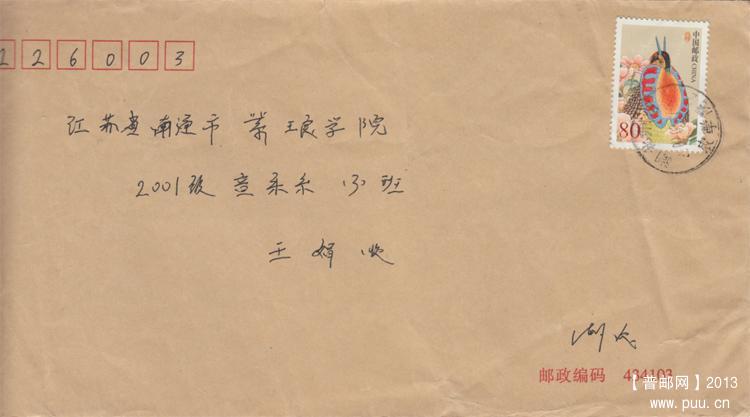 226003
中国邮政 CHINA
80
江苏省南通市 紫琅学院
2001级 音乐系 (3)班
王娟 收
邮政编码 434103
【普邮网】2013
www.puu.cn